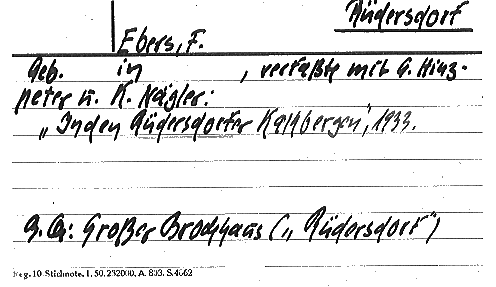 Rüdersdorf
Ebers, F.
Geb. in , verfaßte mit G. Hinz-
peter u. K. Nägler:
„In den Rüdersdorfer Kalkbergen", 1933.
B. Qu: Großer Brockhaus („Rüdersdorf")
Reg. 10 Stichnote. I. 50. 232000. A. 803. S. 4662